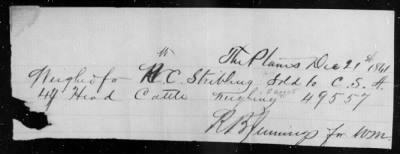 The Plains Dec 21st 1861
Weighed for R C. Stribling Sold to C. S. A.
44 Head Cattle Weighing 49557
R B Jennings for WM.